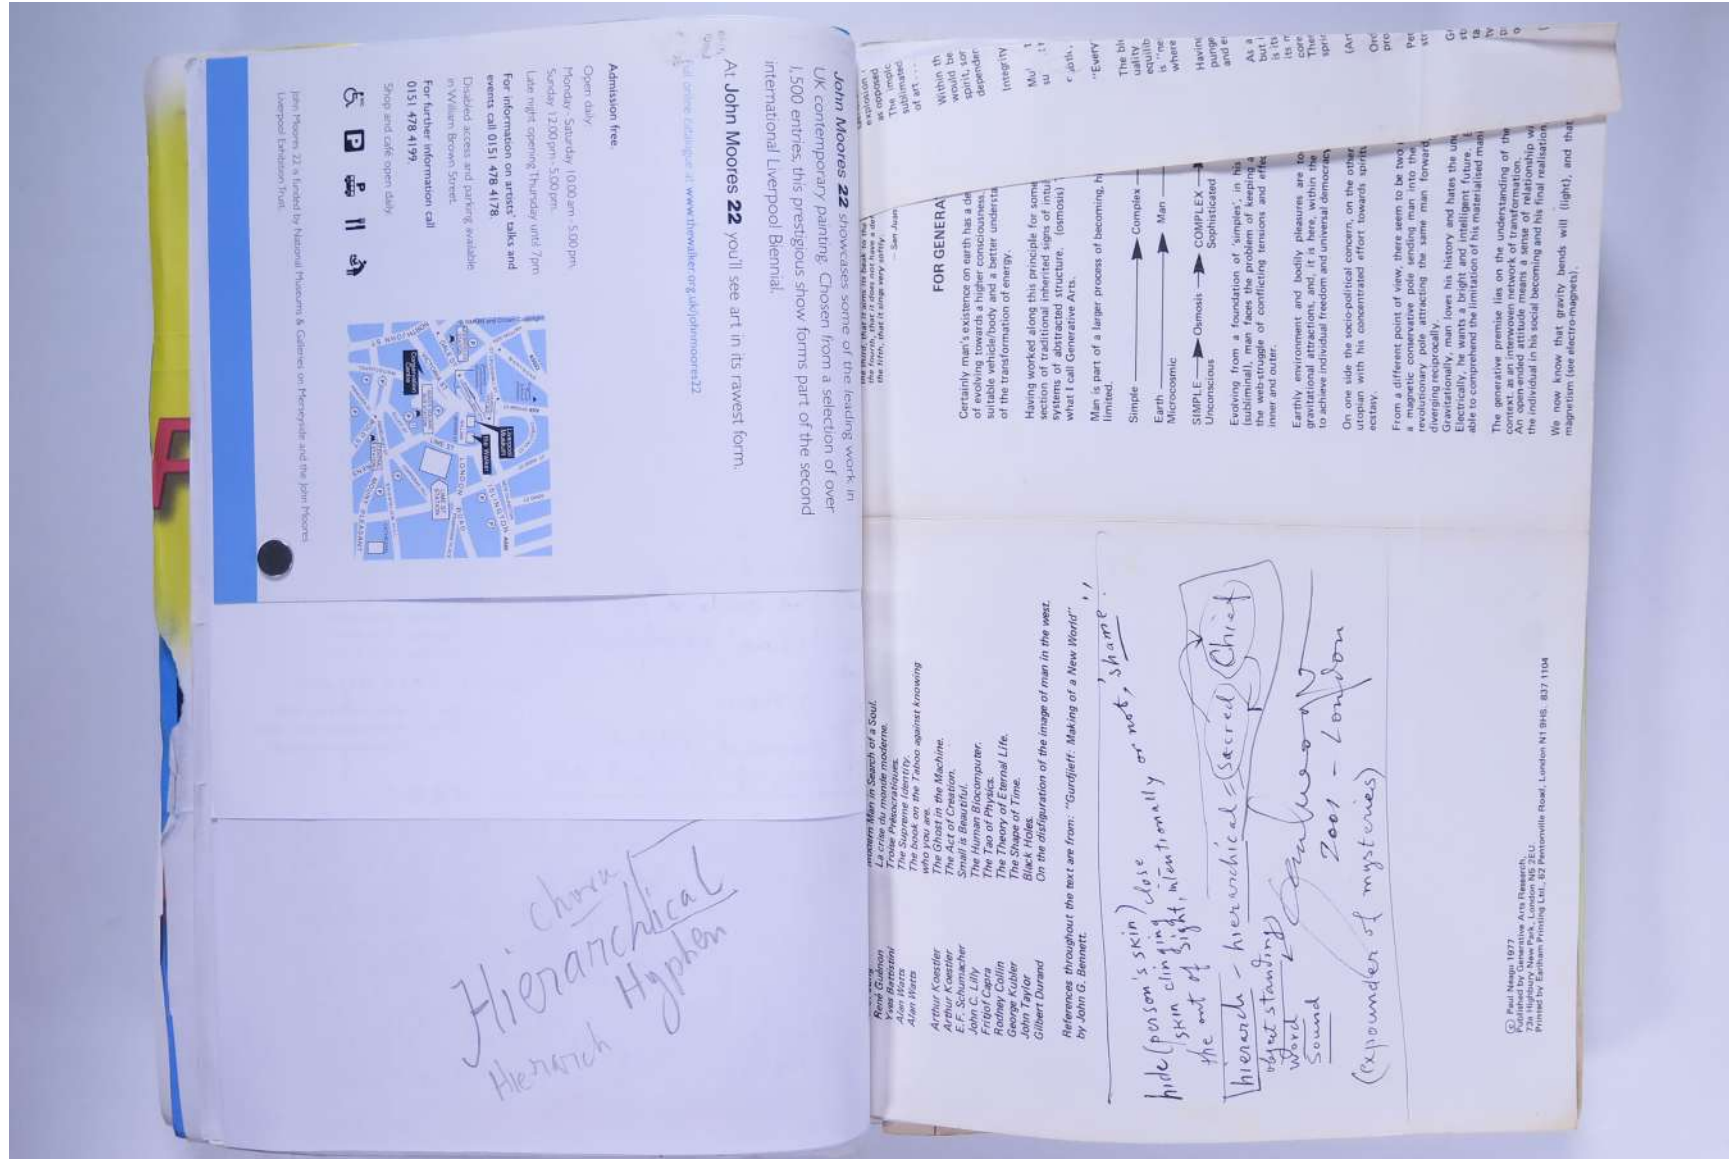 John Moores 22 showcases some of the leading work in
UK contemporary painting. Chosen from a selection of over
1,500 entries, this prestigious show forms part of the second
international Liverpool Biennial.
At John Moores 22 you'll see art in its rawest form.
full online catalogue at www.thewalker.org.uk/johnmoores22
Admission free.
Open daily
Monday - Saturday 10.00 am - 5.00 pm,
Sunday 12.00 pm - 5.00 pm.
Late night opening Thursday until 7pm
For information on artists' talks and
events call 0151 478 4178.
Disabled access and parking available
in William Brown Street.
For further information call
0151 478 4199.
Shop and café open daily
John Moores 22 is funded by National Museums & Galleries on Merseyside and the John Moores
Liverpool Exhibition Trust.
chora
Hierarchical
Hyphen
Hierarch
explosion
as opposed
The implic
sublimated
of art . . .
Within th
would be
spirit, sor
depender
Integrity
"Every
The bli
uality
equilib
is "ne
where
Having
punge
and e
the fourth, that it does not have a de
the fifth, that it sings very softly.
— San Juan
FOR GENERA
Certainly man's existence on earth has a de
of evolving towards a higher consciousness,
suitable vehicle/body and a better understa
of the transformation of energy.
Having worked along this principle for some
section of traditional inherited signs of intui
systems of abstracted structure. (osmosis)
what I call Generative Arts.
Man is part of a larger process of becoming, h
limited.
Simple Complex
Earth Man
Microcosmic
SIMPLE Osmosis COMPLEX
Unconscious Sophisticated
Evolving from a foundation of 'simples', in his
(subliminal), man faces the problem of keeping a
the web-struggle of conflicting tensions and effec
inner and outer.
Earthly environment and bodily pleasures are to
gravitational attractions, and, it is here, within the
to achieve individual freedom and universal democracy
On one side the socio-political concern, on the other
utopian with his concentrated effort towards spiritu
ecstasy.
From a different point of view, there seem to be two
a magnetic conservative pole sending man into the
revolutionary pole attracting the same man forward,
diverging reciprocally.
Gravitationally, man loves his history and hates the un
Electrically, he wants a bright and intelligent future.
able to comprehend the limitation of his materialised mani
The generative premise lies on the understanding of the
context, as an interwoven network of transformation.
An open-ended attitude means a sense of relationship w
the individual in his social becoming and his final realisation
We now know that gravity bends will (light), and that
magnetism (see electro-magnets).
Modern Man in Search of a Soul.
René Guénon La crise du monde moderne.
Yves Battistini Trois Présocratiques.
Alan Watts The Supreme Identity.
Alan Watts The book on the Taboo against knowing
who you are.
Arthur Koestler The Ghost in the Machine.
Arthur Koestler The Act of Creation.
E.F. Schumacher Small is Beautiful.
John C. Lilly The Human Biocomputer.
Fritjof Capra The Tao of Physics.
Rodney Collin The Theory of Eternal Life.
George Kubler The Shape of Time.
John Taylor Black Holes.
Gilbert Durand On the disfiguration of the image of man in the west.
References throughout the text are from: "Gurdjieff: Making of a New World"
by John G. Bennett.
hide (person's skin)
skin clinging close
the out of sight, intentionally or not, 'shame'
hierarch - hierarchical = (sacred) Chief
object standing
word
Sound
2001 - London
(expounder of mysteries)
© Paul Neagu 1977
Published by Generative Arts Research,
73a Highbury New Park, London N5 2EU.
Printed by Earlham Printing Ltd., 62 Pentonville Road, London N1 9HS. 837 1104